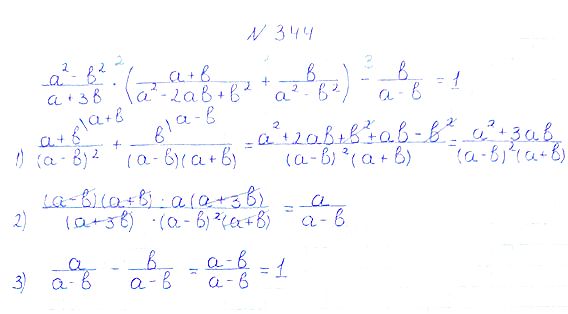 № 344
(a² - b²)/(a + 3b) · ((a + b)/(a² - 2ab + b²) + b/(a² - b²)) - b/(a - b) = 1
2 1 3
1) (a + b)/(a - b)² \a+b + b/((a - b)(a + b)) \a-b = (a² + 2ab + b² + ab - b²)/((a - b)²(a + b)) = (a² + 3ab)/((a - b)²(a + b))
2) ((a - b)(a + b) · a(a + 3b))/((a + 3b) · (a - b)²(a + b)) = a/(a - b)
3) a/(a - b) - b/(a - b) = (a - b)/(a - b) = 1